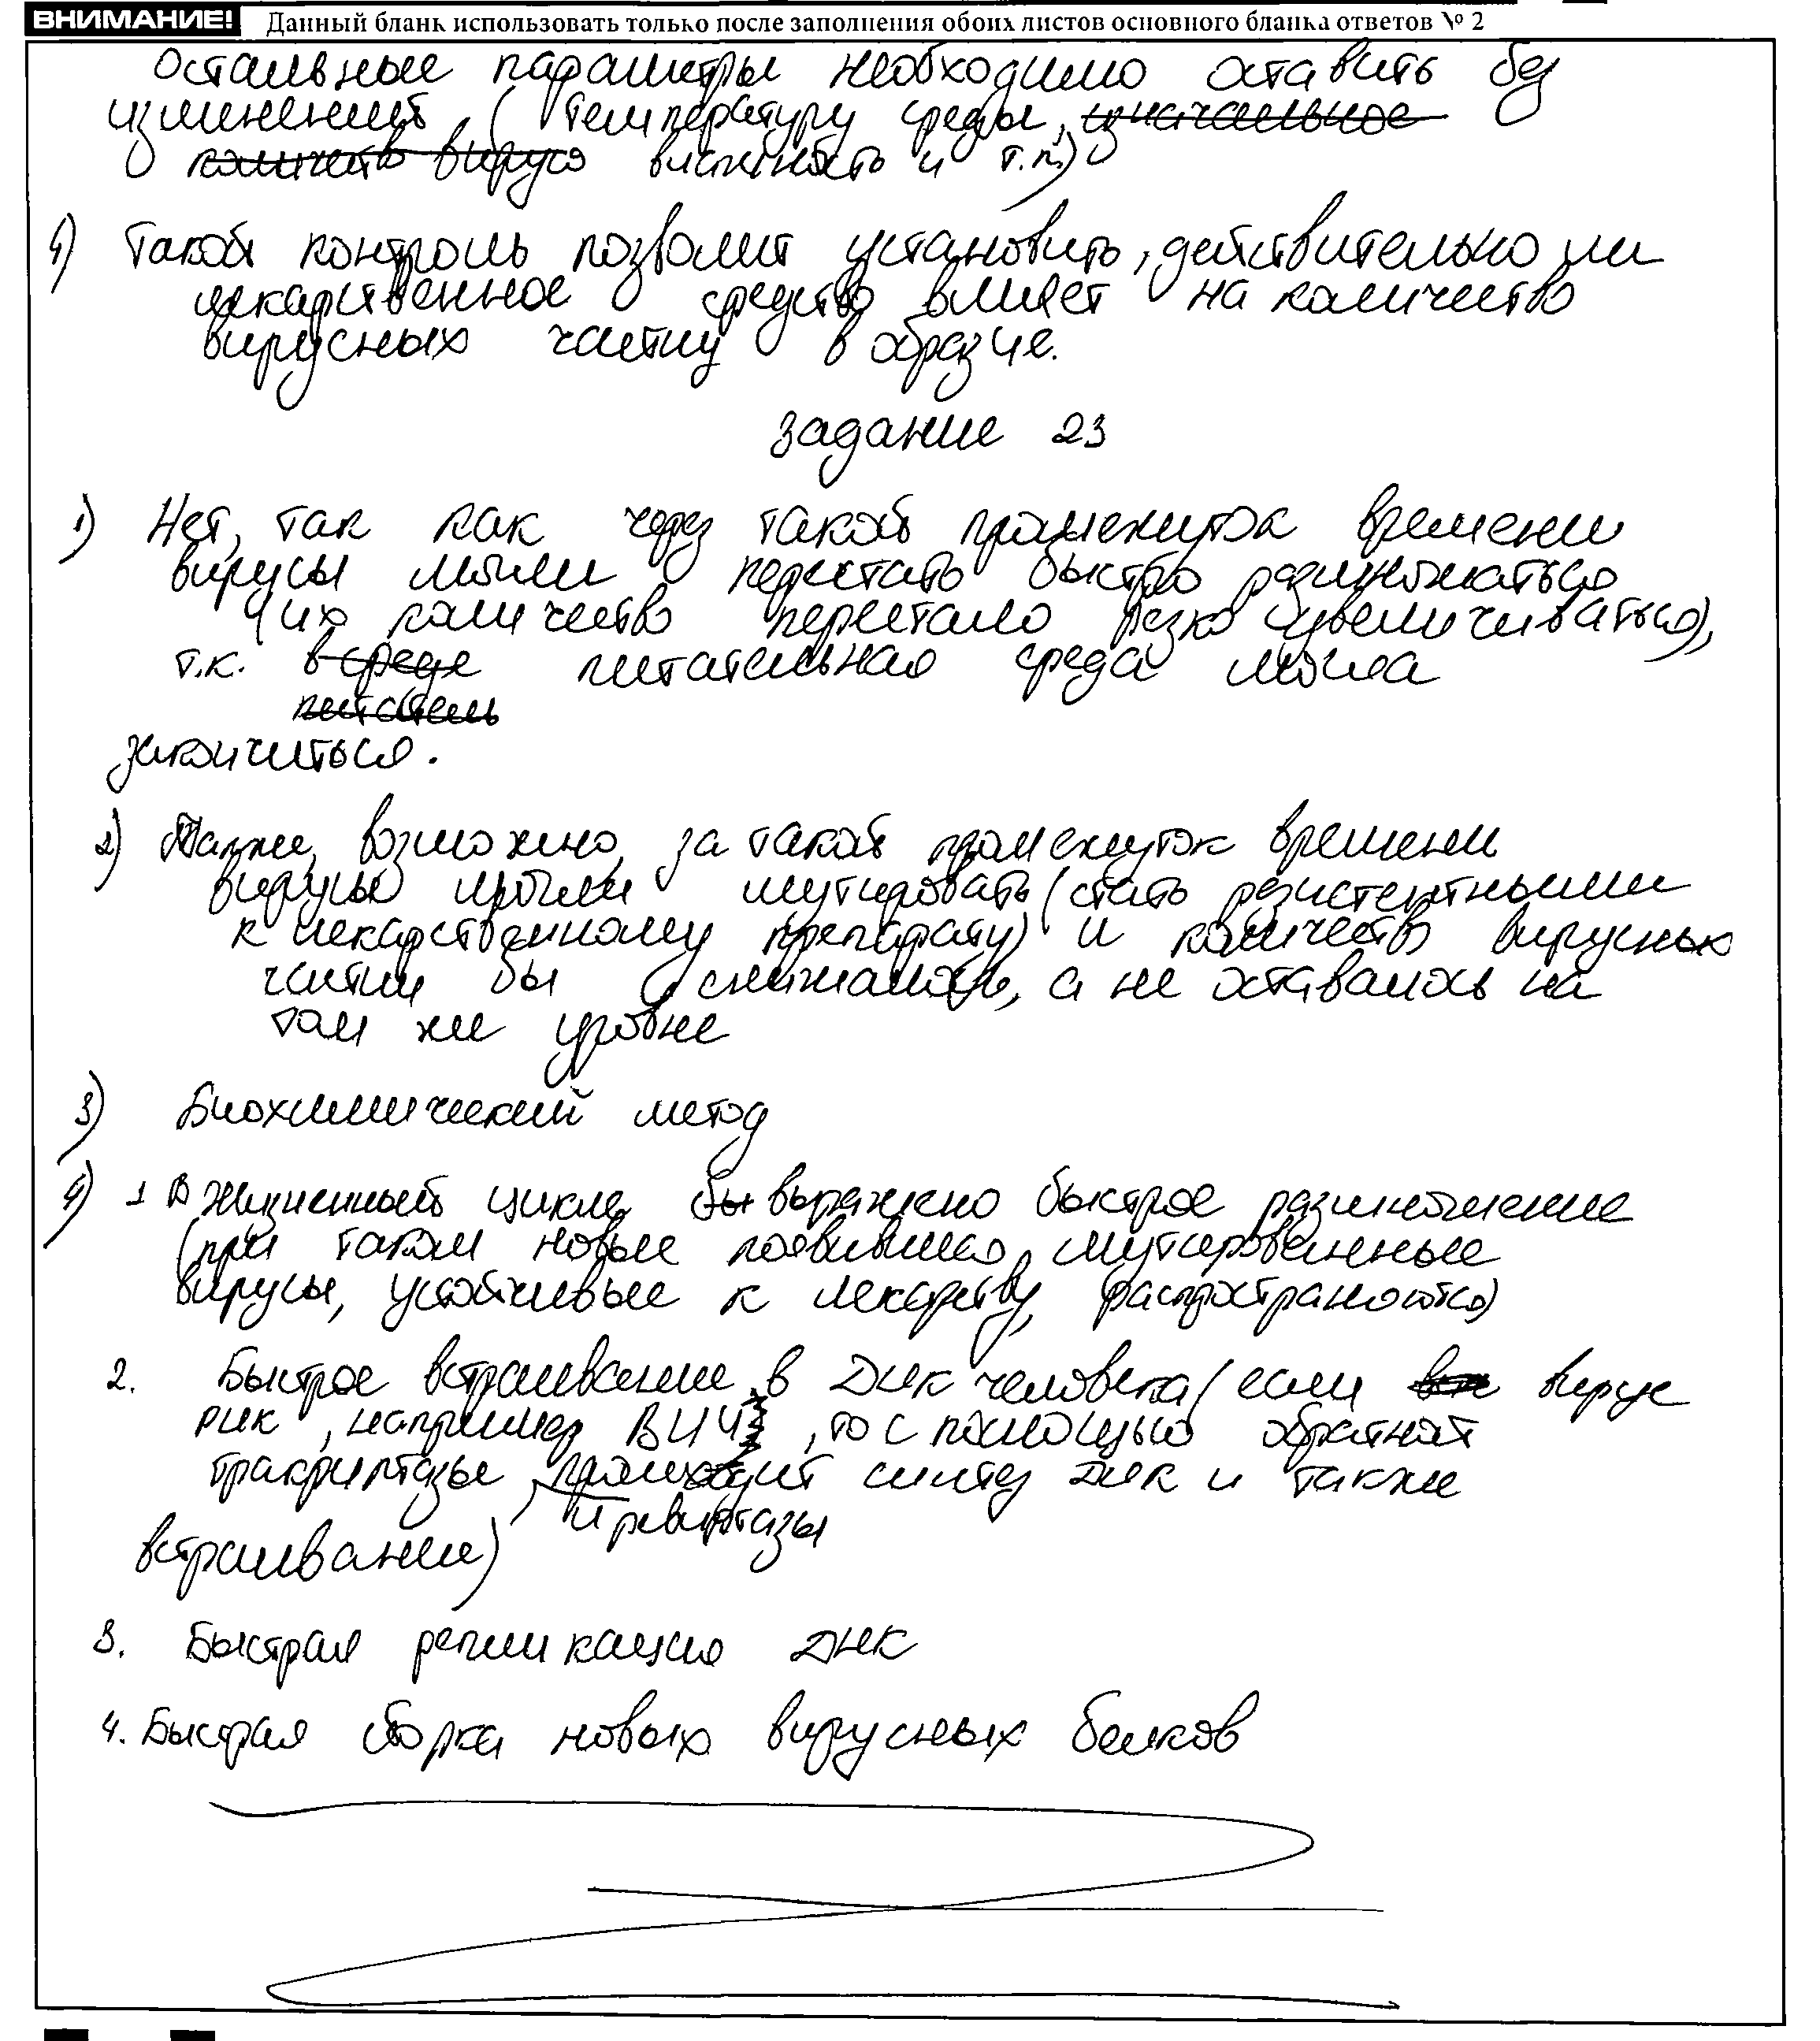 ВНИМАНИЕ! Данный бланк использовать только после заполнения обоих листов основного бланка ответов № 2
Остальные параметры необходимо оставить без
изменений (температуру среды, изначальное
количество вируса влажность и т.п.)
4) Такой контроль позволит установить, действительно ли
лекарственное средство влияет на количество
вирусных частиц в образце.
Задание 23
1) Нет, так как через такой промежуток времени
вирусы могли перестать быстро размножаться
(их количество перестало резко увеличиваться),
т.к. в среде питательная среда могла
питатель
закончиться.
2) Также, возможно, за такой промежуток времени
вирусы могли мутировать (стать резистентными
к лекарственному препарату) и количество вирусных
частиц бы снижалось, а не оставалось на
том же уровне
3) Биохимический метод
4) 1 В жизненный цикле бы выражено быстрое размножение
(при таком новые появившиеся, мутированные
вирусы, устойчивые к лекарству, распространяются)
2. Быстрое встраивание в ДНК человека (если вирус
РНК, например ВИЧ, то с помощью обратной
тракриптазы, происходит синтез ДНК и также
и ревертазы
встраивание)
3. Быстрая репликация ДНК
4. Быстрая сборка новых вирусных белков